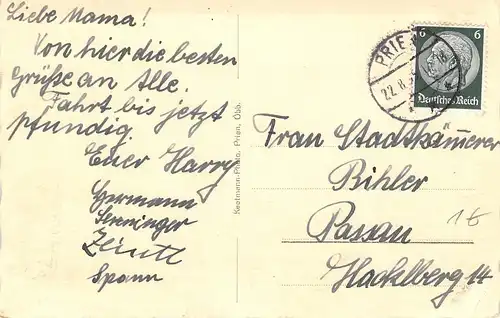 Liebe Mama!
Von hier die besten
Grüße an Alle.
Fahrt bis jetzt
pfundig.
Euer Harry
Germann
Senninger
Zeintl
Spann
Keetmann-Photo, Prien, Obb.
6 6
PRIEN
22.8.
18
Deutsches Reich
Frau Stadtkämmerer
Bihler
Passau
Hacklberg 14
1€